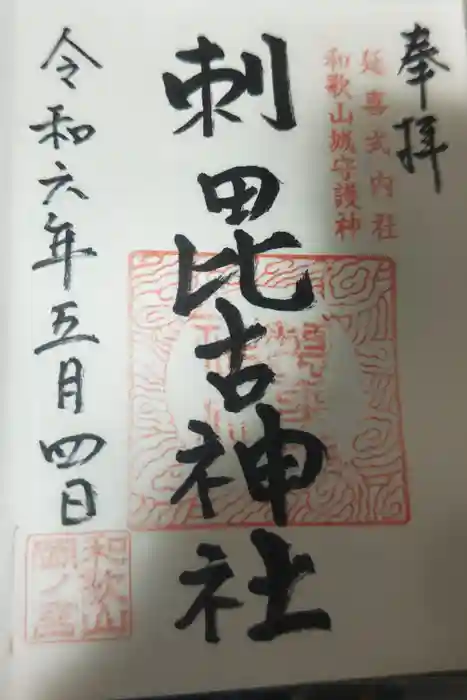 奉拝
延喜式内社
和歌山城守護神
刺田比古神社
令和六年五月四日